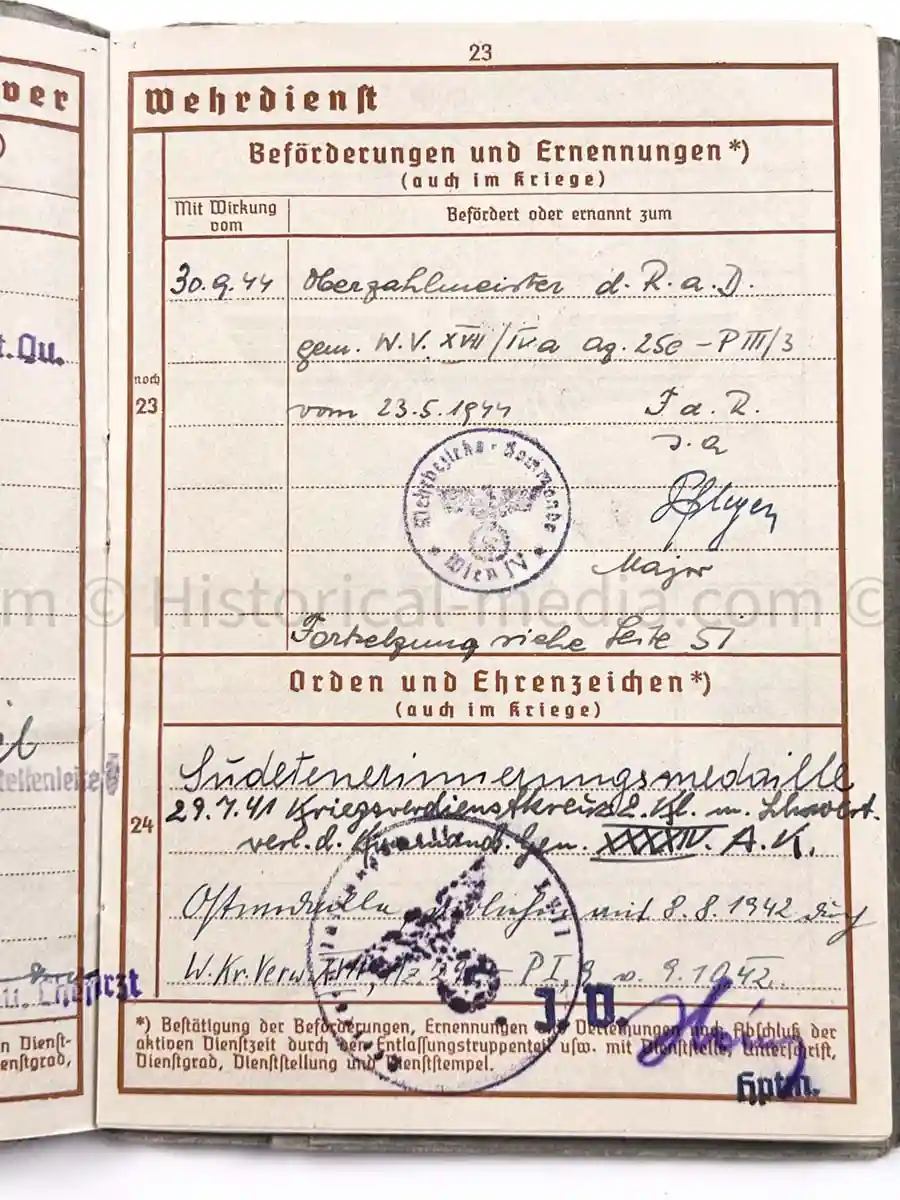 23
ver
Wehrdienst
Beförderungen und Ernennungen *)
(auch im Kriege)
Mit Wirkung vom
Befördert oder ernannt zum
30.9.44 Oberzahlmeister d. R. a. D.
t.Qu.
gem. W.V. XVII/IVa az. 25c - P III/3
noch
23
vom 23.5.1944 F. d. R.
Wehrbezirks-Kommando
Wien IV
Major
m © Historical-media.com ©
Fortsetzung siehe Seite 51
Orden und Ehrenzeichen *)
(auch im Kriege)
Sudetenerinnerungsmedaille
ellenleite
24
29.7.41 Kriegsverdienstkreuz 2. Kl. m. Schwert.
verl. d. Gen. XXXXIV. A.K.
Ostmedaille verliehen mit 8.8.1942 durch
W.Kr.Verw. XVII, P I, v. 9.10.42.
u. Chefarzt
I.V.
*) Bestätigung der Beförderungen, Ernennungen und Verleihungen nach Abschluß der
aktiven Dienstzeit durch den Entlassungstruppenteil usw. mit Dienststelle, Unterschrift,
Dienstgrad, Dienststellung und Dienststempel.
n Dienst-
enstgrad,
Hptm.